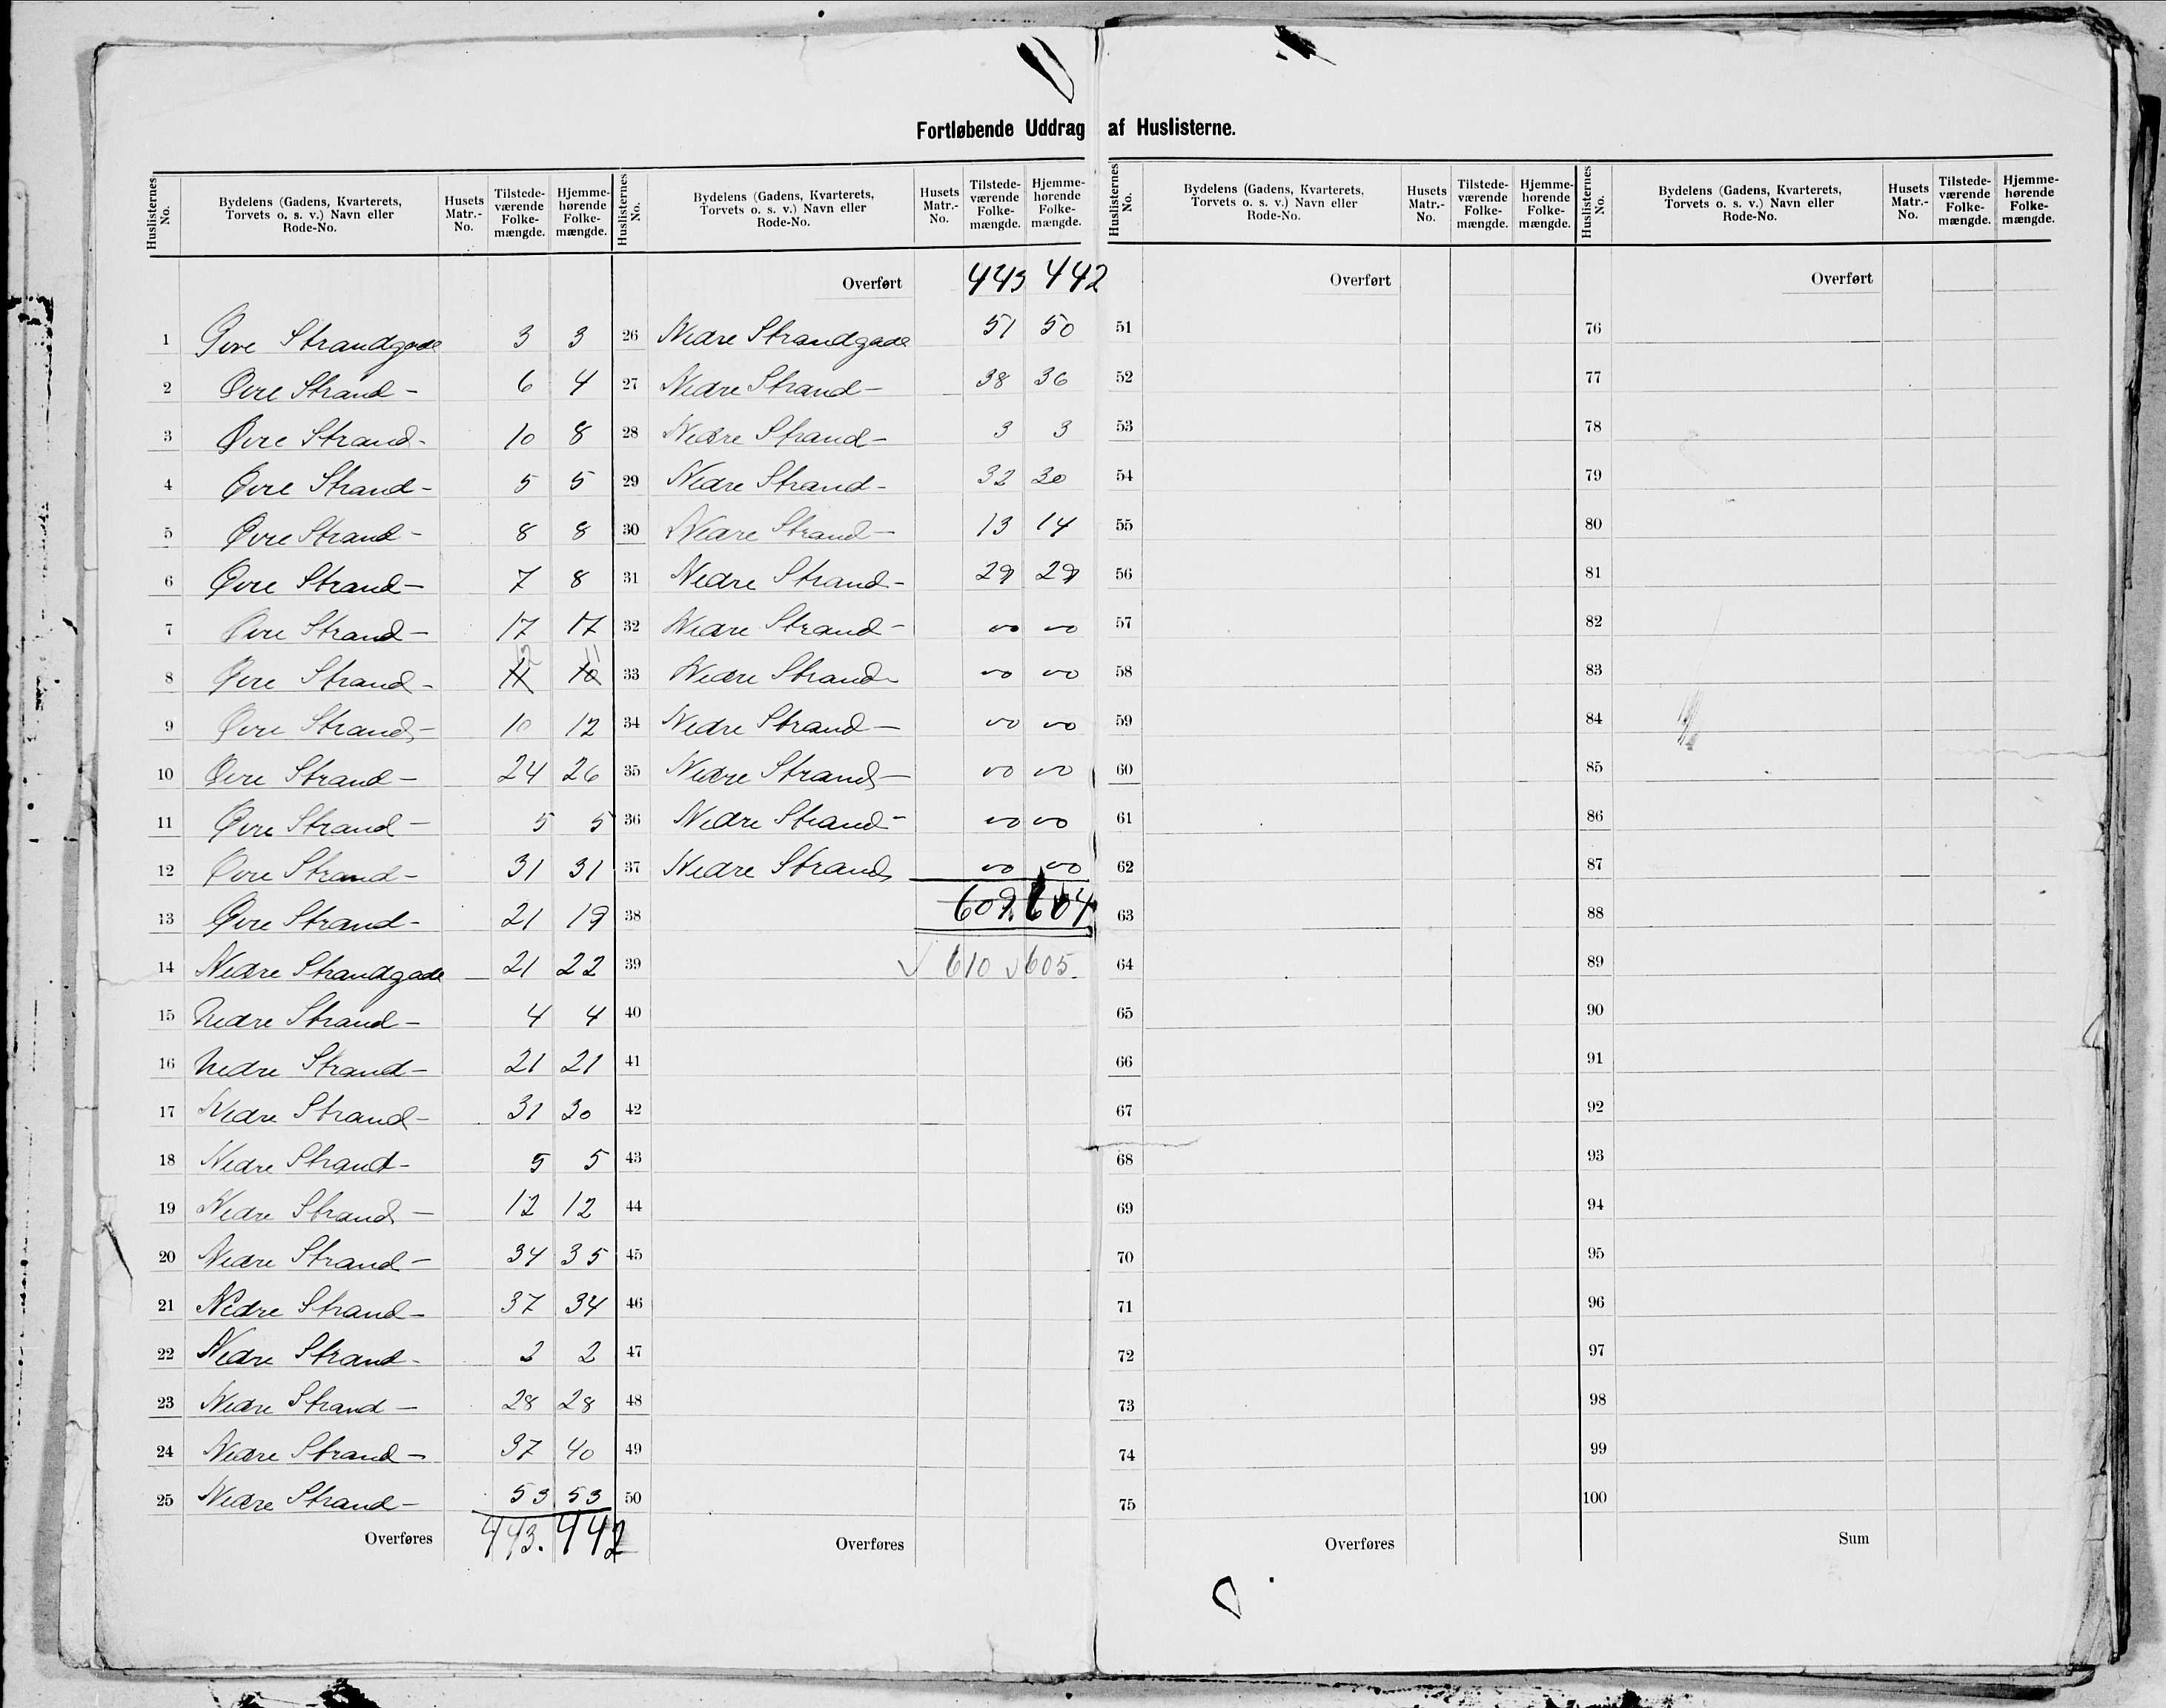 Fortløbende Uddrag af Huslisterne.
Huslisternes No. Bydelens (Gadens, Kvarterets, Torvets o. s. v.) Navn eller Rode-No. Husets Matr.-No. Tilstede-værende Folke-mængde. Hjemme-hørende Folke-mængde.
1 Øvre Strandgade 3 3
2 Øvre Strand- 6 4
3 Øvre Strand- 10 8
4 Øvre Strand- 5 5
5 Øvre Strand- 8 8
6 Øvre Strand- 7 8
7 Øvre Strand- 17 17
8 Øvre Strand- 11 12 10 11
9 Øvre Strand- 10 12
10 Øvre Strand- 24 26
11 Øvre Strand- 5 5
12 Øvre Strand- 31 31
13 Øvre Strand- 21 19
14 Nedre Strandgade 21 22
15 Nedre Strand- 4 4
16 Nedre Strand- 21 21
17 Nedre Strand- 31 30
18 Nedre Strand- 5 5
19 Nedre Strand- 12 12
20 Nedre Strand- 34 35
21 Nedre Strand- 37 34
22 Nedre Strand- 2 2
23 Nedre Strand- 28 28
24 Nedre Strand- 37 40
25 Nedre Strand- 53 53
Overføres 443. 442
Huslisternes No. Bydelens (Gadens, Kvarterets, Torvets o. s. v.) Navn eller Rode-No. Husets Matr.-No. Tilstede-værende Folke-mængde. Hjemme-hørende Folke-mængde.
Overført 443 442
26 Nedre Strandgade 51 50
27 Nedre Strand- 38 36
28 Nedre Strand- 3 3
29 Nedre Strand- 32 30
30 Nedre Strand- 13 14
31 Nedre Strand- 29 29
32 Nedre Strand- 00 00
33 Nedre Strand- 00 00
34 Nedre Strand- 00 00
35 Nedre Strand- 00 00
36 Nedre Strand- 00 00
37 Nedre Strand 00 00
38 609. 604
39 610 605.
40
41
42
43
44
45
46
47
48
49
50
Overføres
Huslisternes No. Bydelens (Gadens, Kvarterets, Torvets o. s. v.) Navn eller Rode-No. Husets Matr.-No. Tilstede-værende Folke-mængde. Hjemme-hørende Folke-mængde.
Overført
51
52
53
54
55
56
57
58
59
60
61
62
63
64
65
66
67
68
69
70
71
72
73
74
75
Overføres
Huslisternes No. Bydelens (Gadens, Kvarterets, Torvets o. s. v.) Navn eller Rode-No. Husets Matr.-No. Tilstede-værende Folke-mængde. Hjemme-hørende Folke-mængde.
Overført
76
77
78
79
80
81
82
83
84
85
86
87
88
89
90
91
92
93
94
95
96
97
98
99
100
Sum